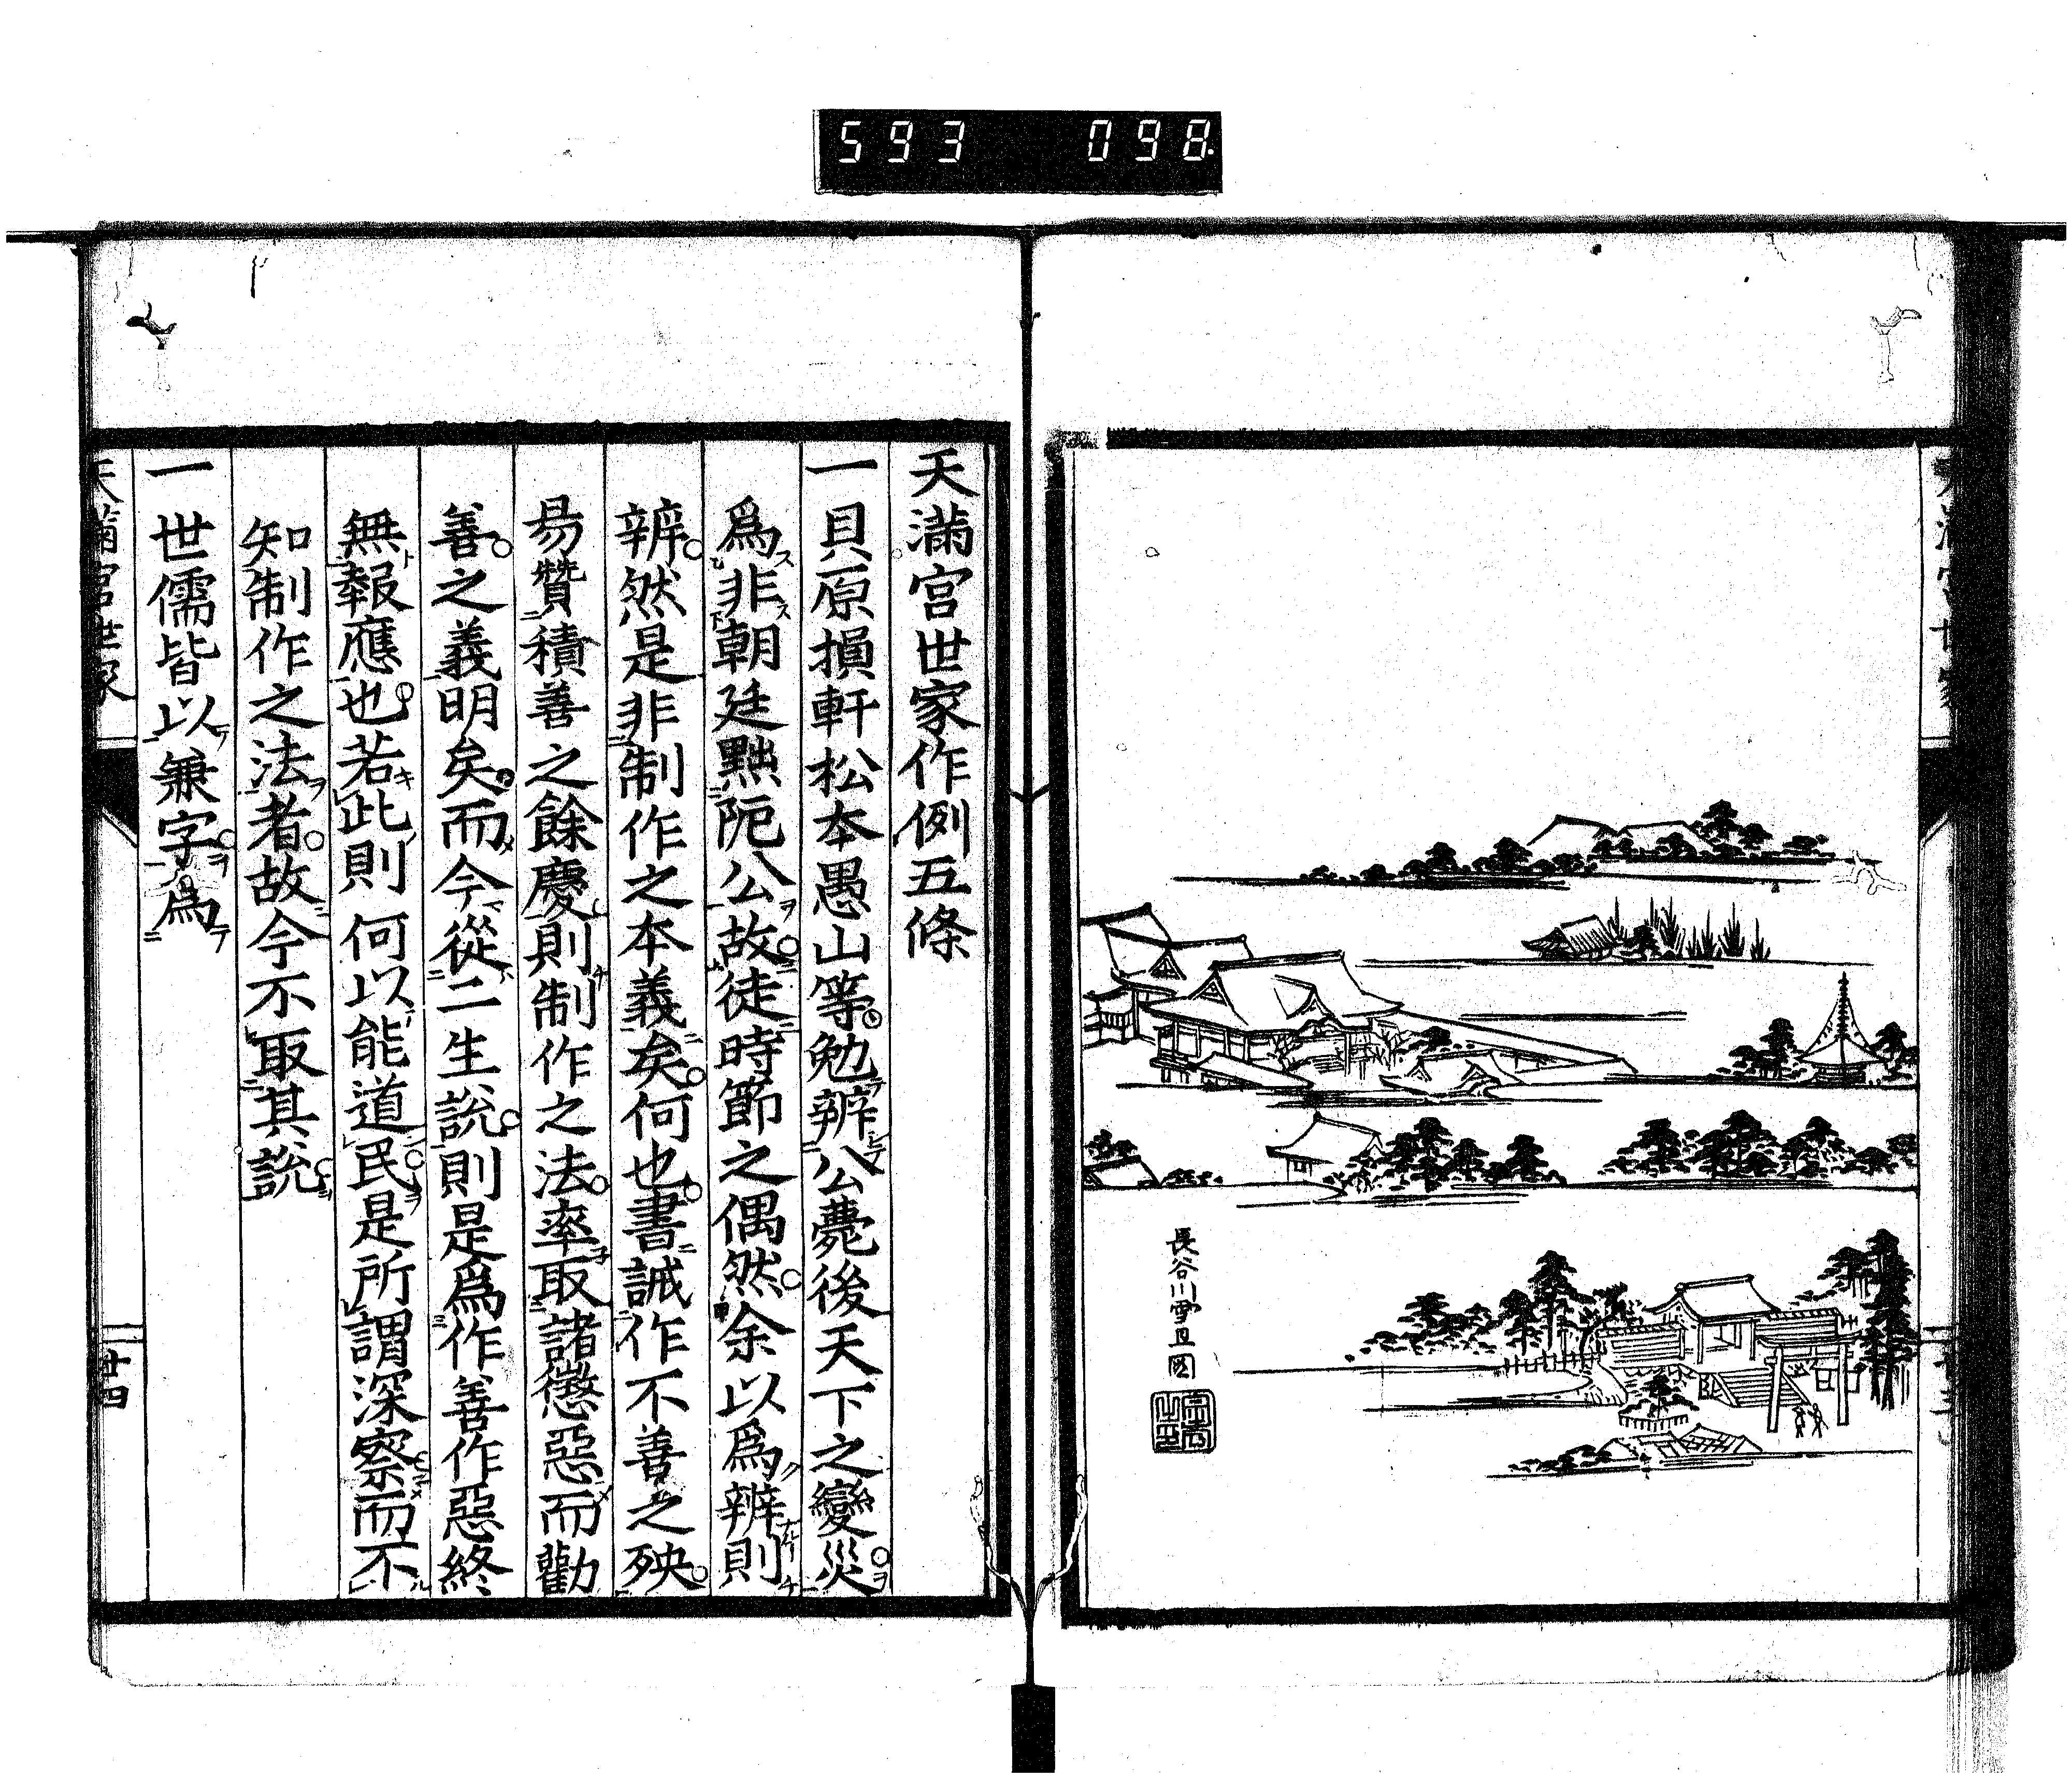 593 098
長谷川雪旦圖
天滿宮世家作例五條
一貝原損軒松本愚山等勉辨公薨後天下之變災
爲非朝廷黜阨公故徒時節之偶然余以爲辨則
辨然是非制作之本義矣何也書誡作不善之殃
易贊積善之餘慶則制作之法率取諸懲惡而勸
善之義明矣而今從二生說則是爲作善作惡終
無報應也若此則何以能道民是所謂深察而不
知制作之法者故今不取其說
一世儒皆以兼字爲
天滿宮世家
廿四